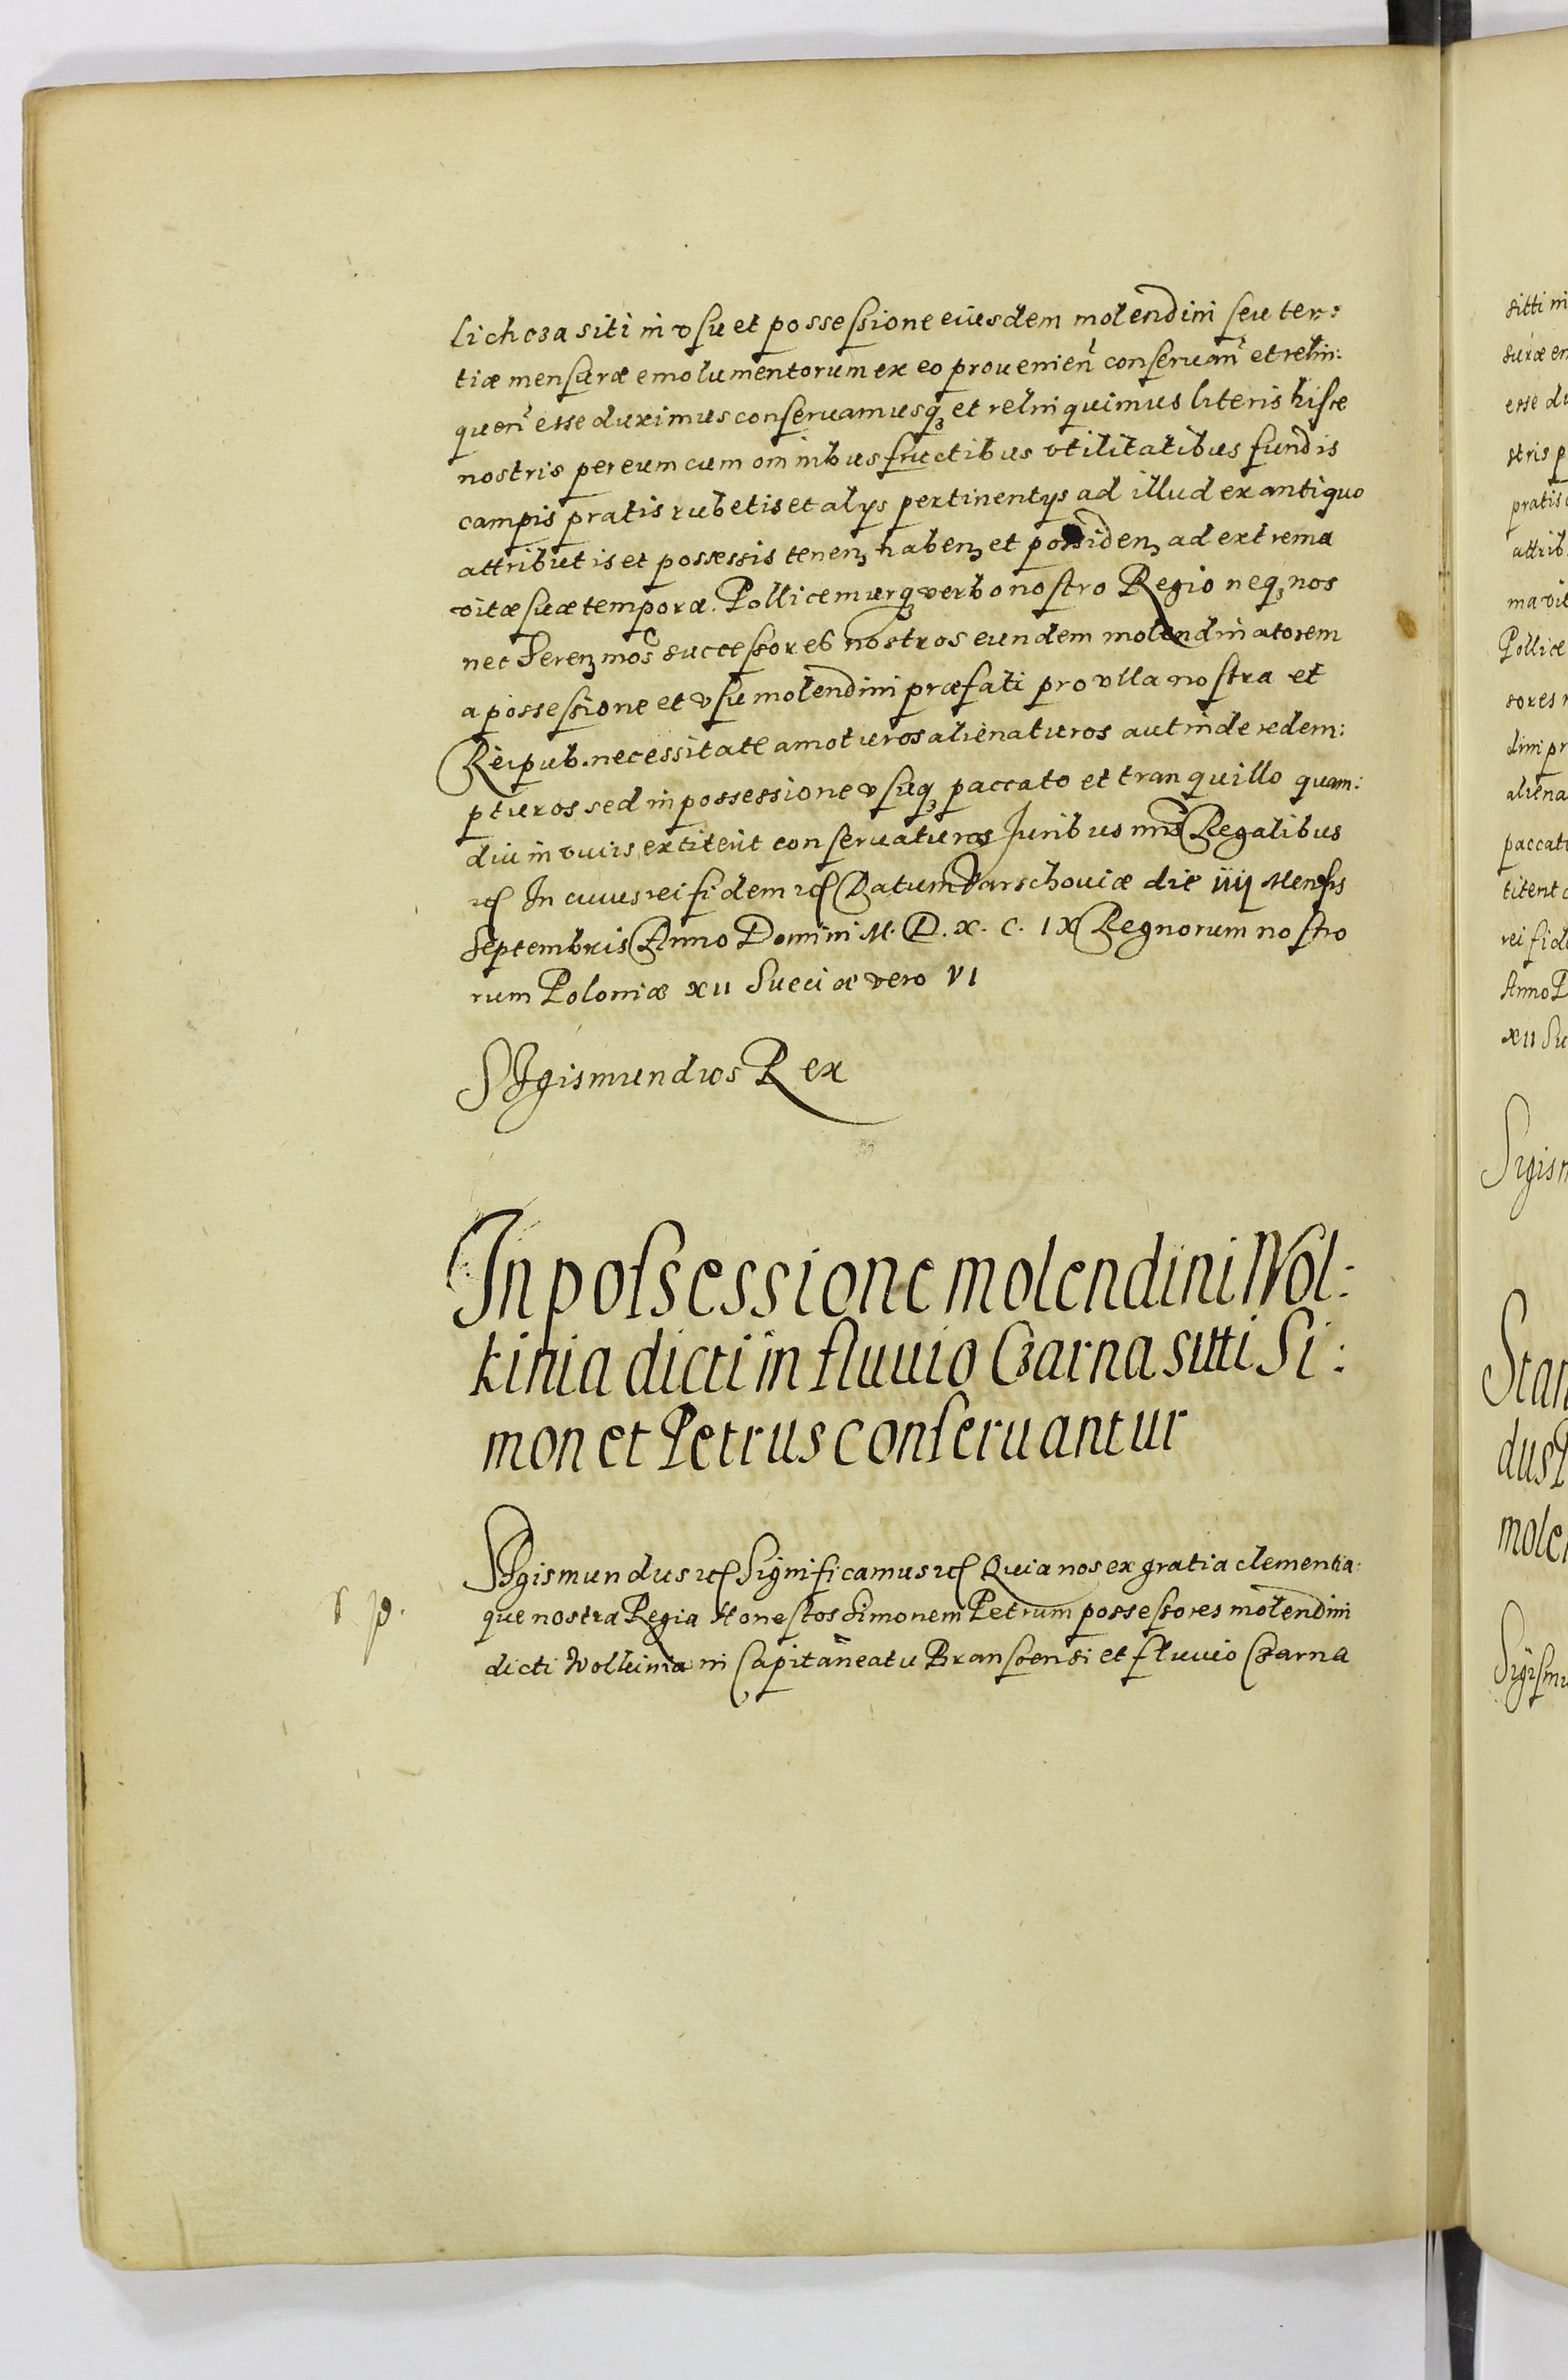 lichoza siti in vsu et possessione eiusdem molendini seu ter:
tiæ mensuræ emolumentorum ex eo prouenien̄ conseruan̄ et relin:
quen̄ esse duximus conseruamusqꝫ et relinquimus literis hisce
nostris per eum cum omnibus fructibus vtilitatibus fundis
campis pratis rubetis et alys pertinentys ad illud ex antiquo
attributis et possessis tenenꝫ habenꝫ et possidenꝫ ad extrema
vitæ suæ tempora. Pollicemurqꝫ verbo nostro Regio neqꝫ nos
nec Serenꝫmos successores nostros eundem molendinatorem
a possessione et vsu molendini præfati pro vlla nostra et
Reipub. necessitate amoturos alienaturos aut inde redem:
pturos sed in possessione vsuqꝫ paccato et tranquillo quam:
diu in viuis extiterit conseruaturos Juribus nr̄is Regalibus
etc In cuius rei fidem etc Datum Varschouiæ die iiij Mensis
Septembris Anno Domini M. D. X. C. IX Regnorum nostro
rum Poloniæ XII Sueciæ vero VI
Sigismundus Rex
In possessione molendini Wol:
kinia dicti in fluuio Czarna sitti Si:
mon et Petrus conseruantur
Sigismundus etc Significamus etc Quia nos ex gratia clementia:
que nostra Regia Honestos Simonem Petrum possessores molendini
dicti Wolkinia in Capitaneatu Branscensi et fluuio Czarna
sitti in
suræ em
esse du
stris p
pratis
attrib
ma vit
Pollice
sores n
dini pr
aliena
paccat
titerit c
rei fide
Anno
XII Su
Sigism
Stan
dus P
molen
Sigismu